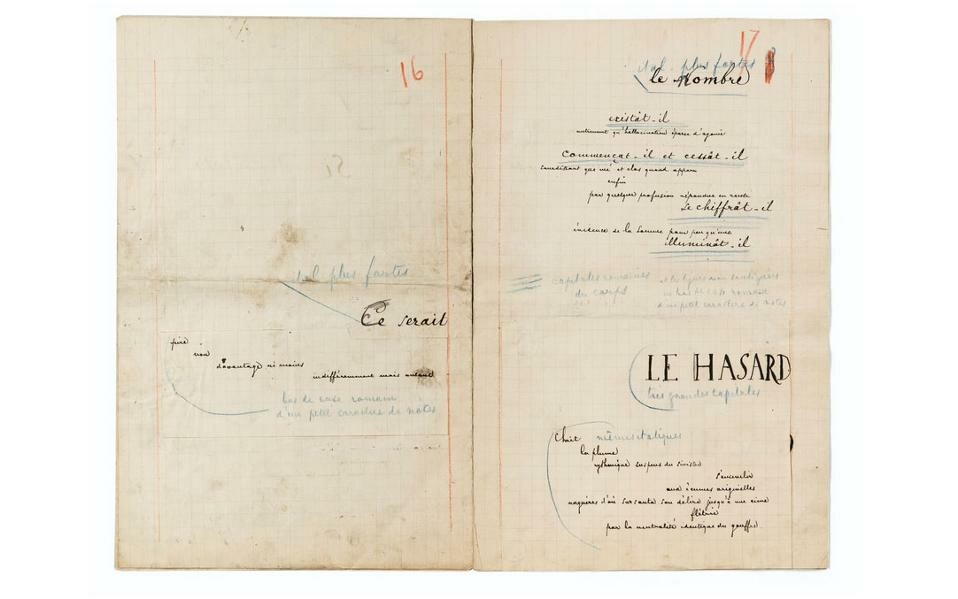 16
ital. plus fortes
Ce serait
pire
non
davantage ni moins
indifféremment mais autant
bas de casse romain
d'un petit caractère de notes
17
ital. plus fortes
le Nombre
existât-il
autrement qu'hallucination éparse d'agonie
commençât-il et cessât-il
sourdant que nié et clos quand apparu
enfin
par quelque profusion répandue en rareté
se chiffrât-il
évidence de la somme pour peu qu'une
illuminât-il
capitales romaines
du corps
bas de casse romain
d'un petit caractère de notes
LE HASARD
très grandes capitales
Choit
mêmes italiques
la plume
rythmique suspens du sinistre
s'ensevelir
aux écumes originelles
naguères d'où sursauta son délire jusqu'à une cime
flétrie
par la neutralité identique du gouffre